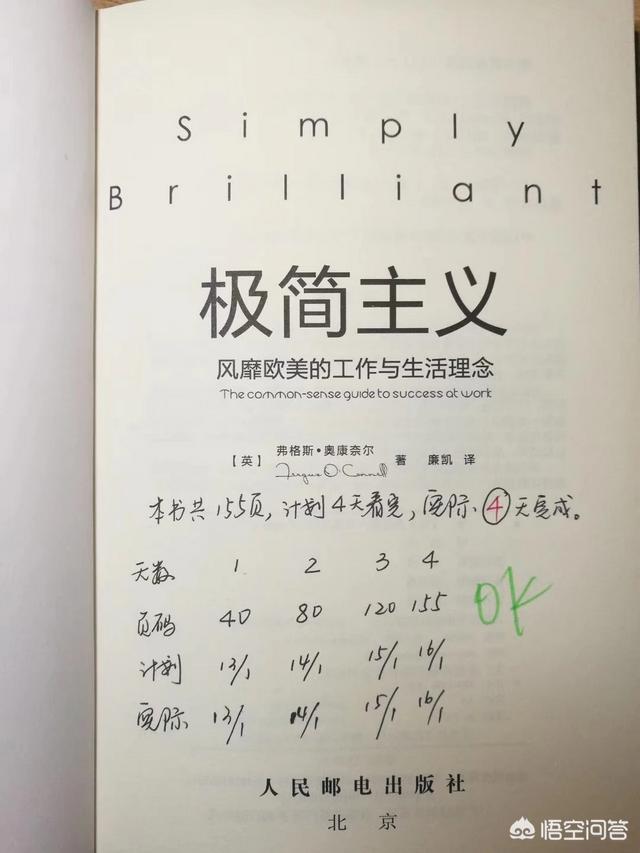 Simply
Brilliant
极简主义
风靡欧美的工作与生活理念
The common-sense guide to success at work
【英】 弗格斯·奥康奈尔 著 廉凯 译
Fergus O'Connell
本书共155页，计划4天看完，实际④天完成。
天数 1 2 3 4
页码 40 80 120 155
OK
计划 13/1 14/1 15/1 16/1
实际 13/1 14/1 15/1 16/1
人民邮电出版社
北京
悟空问答